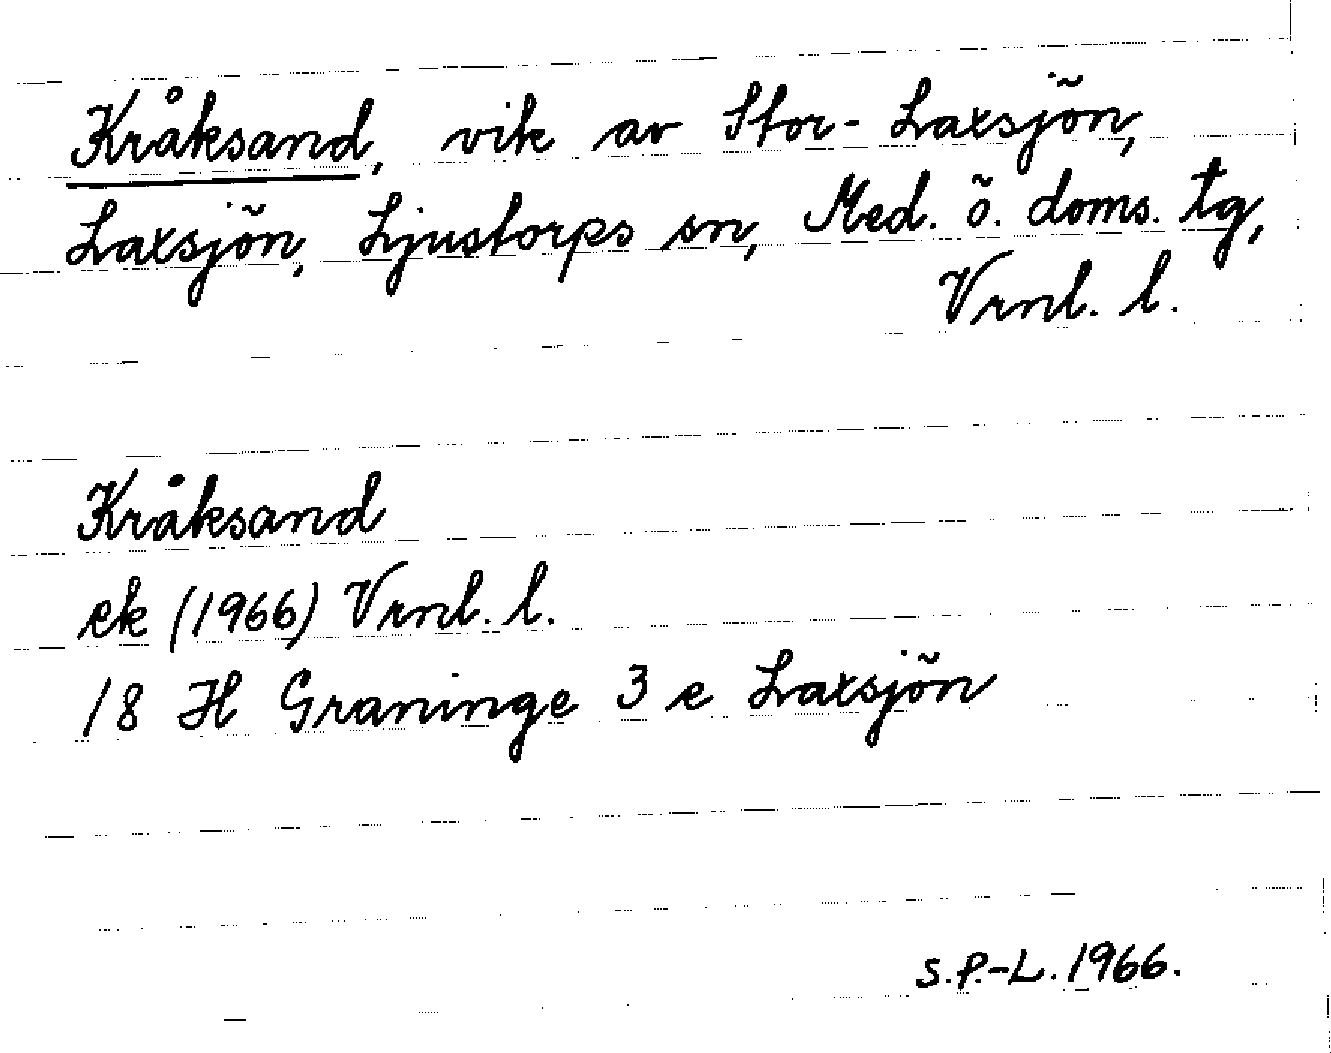 Kråksand, vik av Stor-Laxsjön,
Laxsjön, Ljustorps sn, Med. ö. doms. tg,
Vrnl. l.
Kråksand
ek (1966) Vrnl. l.
18 H Graninge 3 e Laxsjön
S.P.-L. 1966.